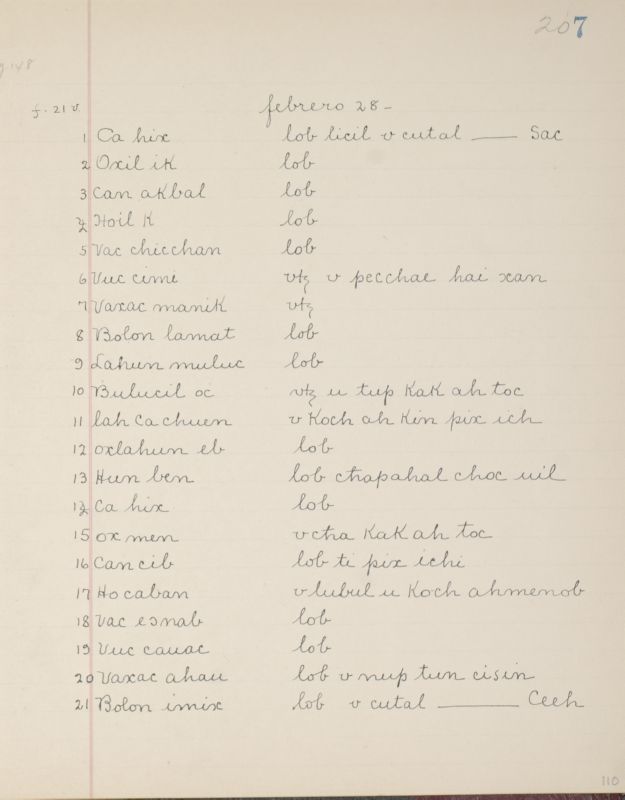 207
g. 148
f. 21 v. febrero 28 -
1 Ca hix lob licil v cutal —— Sac
2 Oxil iK lob
3 Can aKbal lob
4 Hoil K lob
5 Vac chicchan lob
6 Vuc cimi vtz v pecchae hai xan
7 Vaxac maniK vtz
8 Bolon lamat lob
9 Lahun muluc lob
10 Bulucil oc vtz u tup KaK ah toc
11 lah Ca chuen v Koch ah Kin pix ich
12 oxlahun eb lob
13 Hun ben lob chapahal choc uil
14 Ca hix lob
15 ox men v cha KaK ah toc
16 Can cib lob ti pix ichi
17 Ho caban v lubul u Koch ahmenob
18 Vac esnab lob
19 Vuc cauac lob
20 Vaxac ahau lob v nup tun cisin
21 Bolon imix lob v cutal —— Ceeh
110